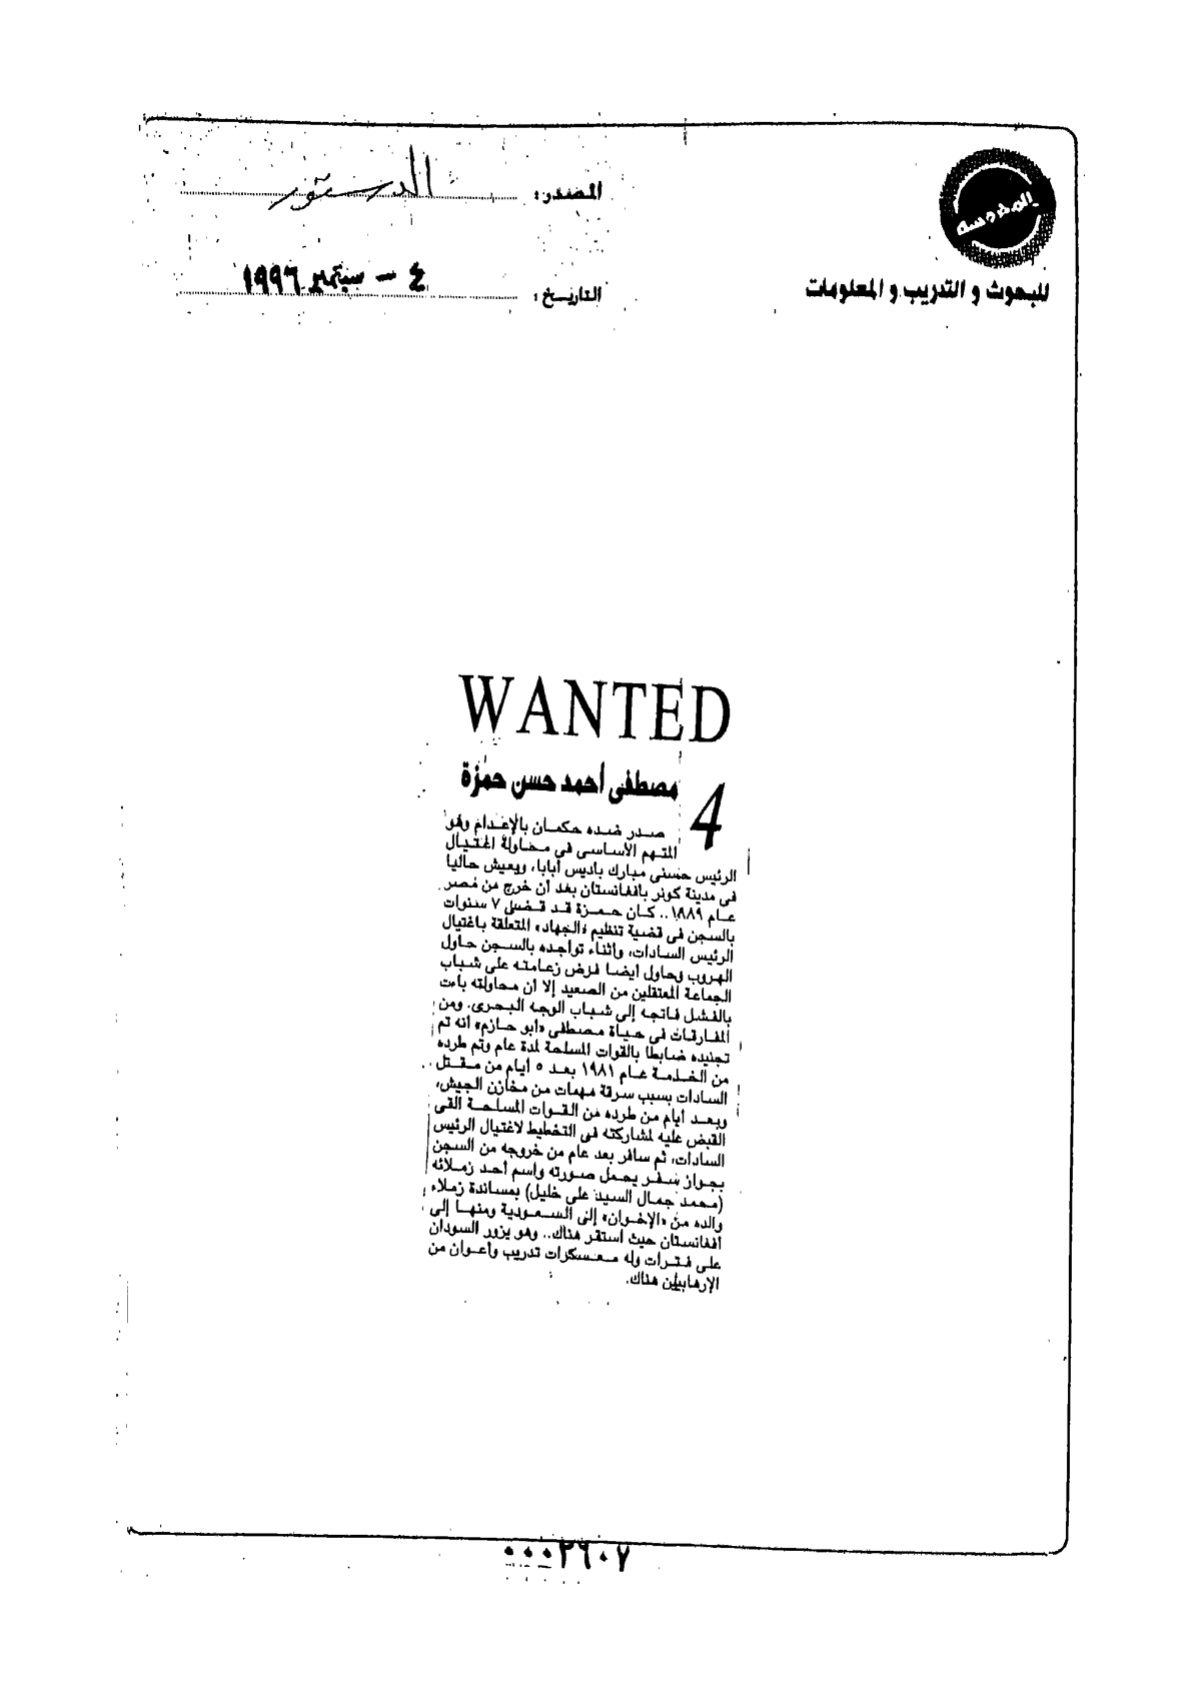 المحروسة
للبحوث و التدريب و المعلومات
المصدر: الدستور
التاريخ: ٤ - سبتمبر ١٩٩٦
WANTED
4 مصطفى أحمد حسن حمزة
صدر ضده حكمان بالإعدام وهو
المتهم الأساسى فى محاولة اغتيال
الرئيس حسنى مبارك باديس أبابا، ويعيش حاليا
فى مدينة كونر بأفغانستان بعد أن خرج من مصر
عام ١٩٨٩.. كان حمزة قد قضى ٧ سنوات
بالسجن فى قضية تنظيم «الجهاد» المتعلقة باغتيال
الرئيس السادات، وأثناء تواجده بالسجن حاول
الهروب وحاول أيضا فرض زعامته على شباب
الجماعة المعتقلين من الصعيد إلا أن محاولته باءت
بالفشل فاتجه إلى شباب الوجه البحرى. ومن
المفارقات فى حياة مصطفى «أبو حازم» أنه تم
تجنيده ضابطا بالقوات المسلحة لمدة عام وتم طرده
من الخدمة عام ١٩٨١ بعد ٥ أيام من مقتل
السادات بسبب سرقة مهمات من مخازن الجيش،
وبعد أيام من طرده من القوات المسلحة القى
القبض عليه لمشاركته فى التخطيط لاغتيال الرئيس
السادات، ثم سافر بعد عام من خروجه من السجن
بجواز سفر يحمل صورته واسم أحد زملائه
(محمد جمال السيد على خليل) بمساندة زملاء
والده من «الإخوان» إلى السعودية ومنها إلى
أفغانستان حيث استقر هناك.. وهو يزور السودان
على فترات وله معسكرات تدريب وأعوان من
الإرهابيين هناك.
٠٠٠٢٦٠٧